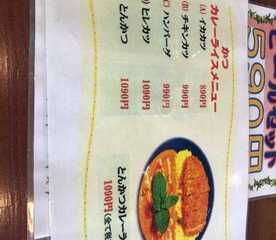 ビールセット
590円
かつ
カレーライスメニュー
(A) イカカツ 890円
(B) チキンカツ 990円
(C) ハンバーグ 990円
ヒレカツ 1090円
とんかつ 1090円
とんかつカレーラ
1090円(全て税